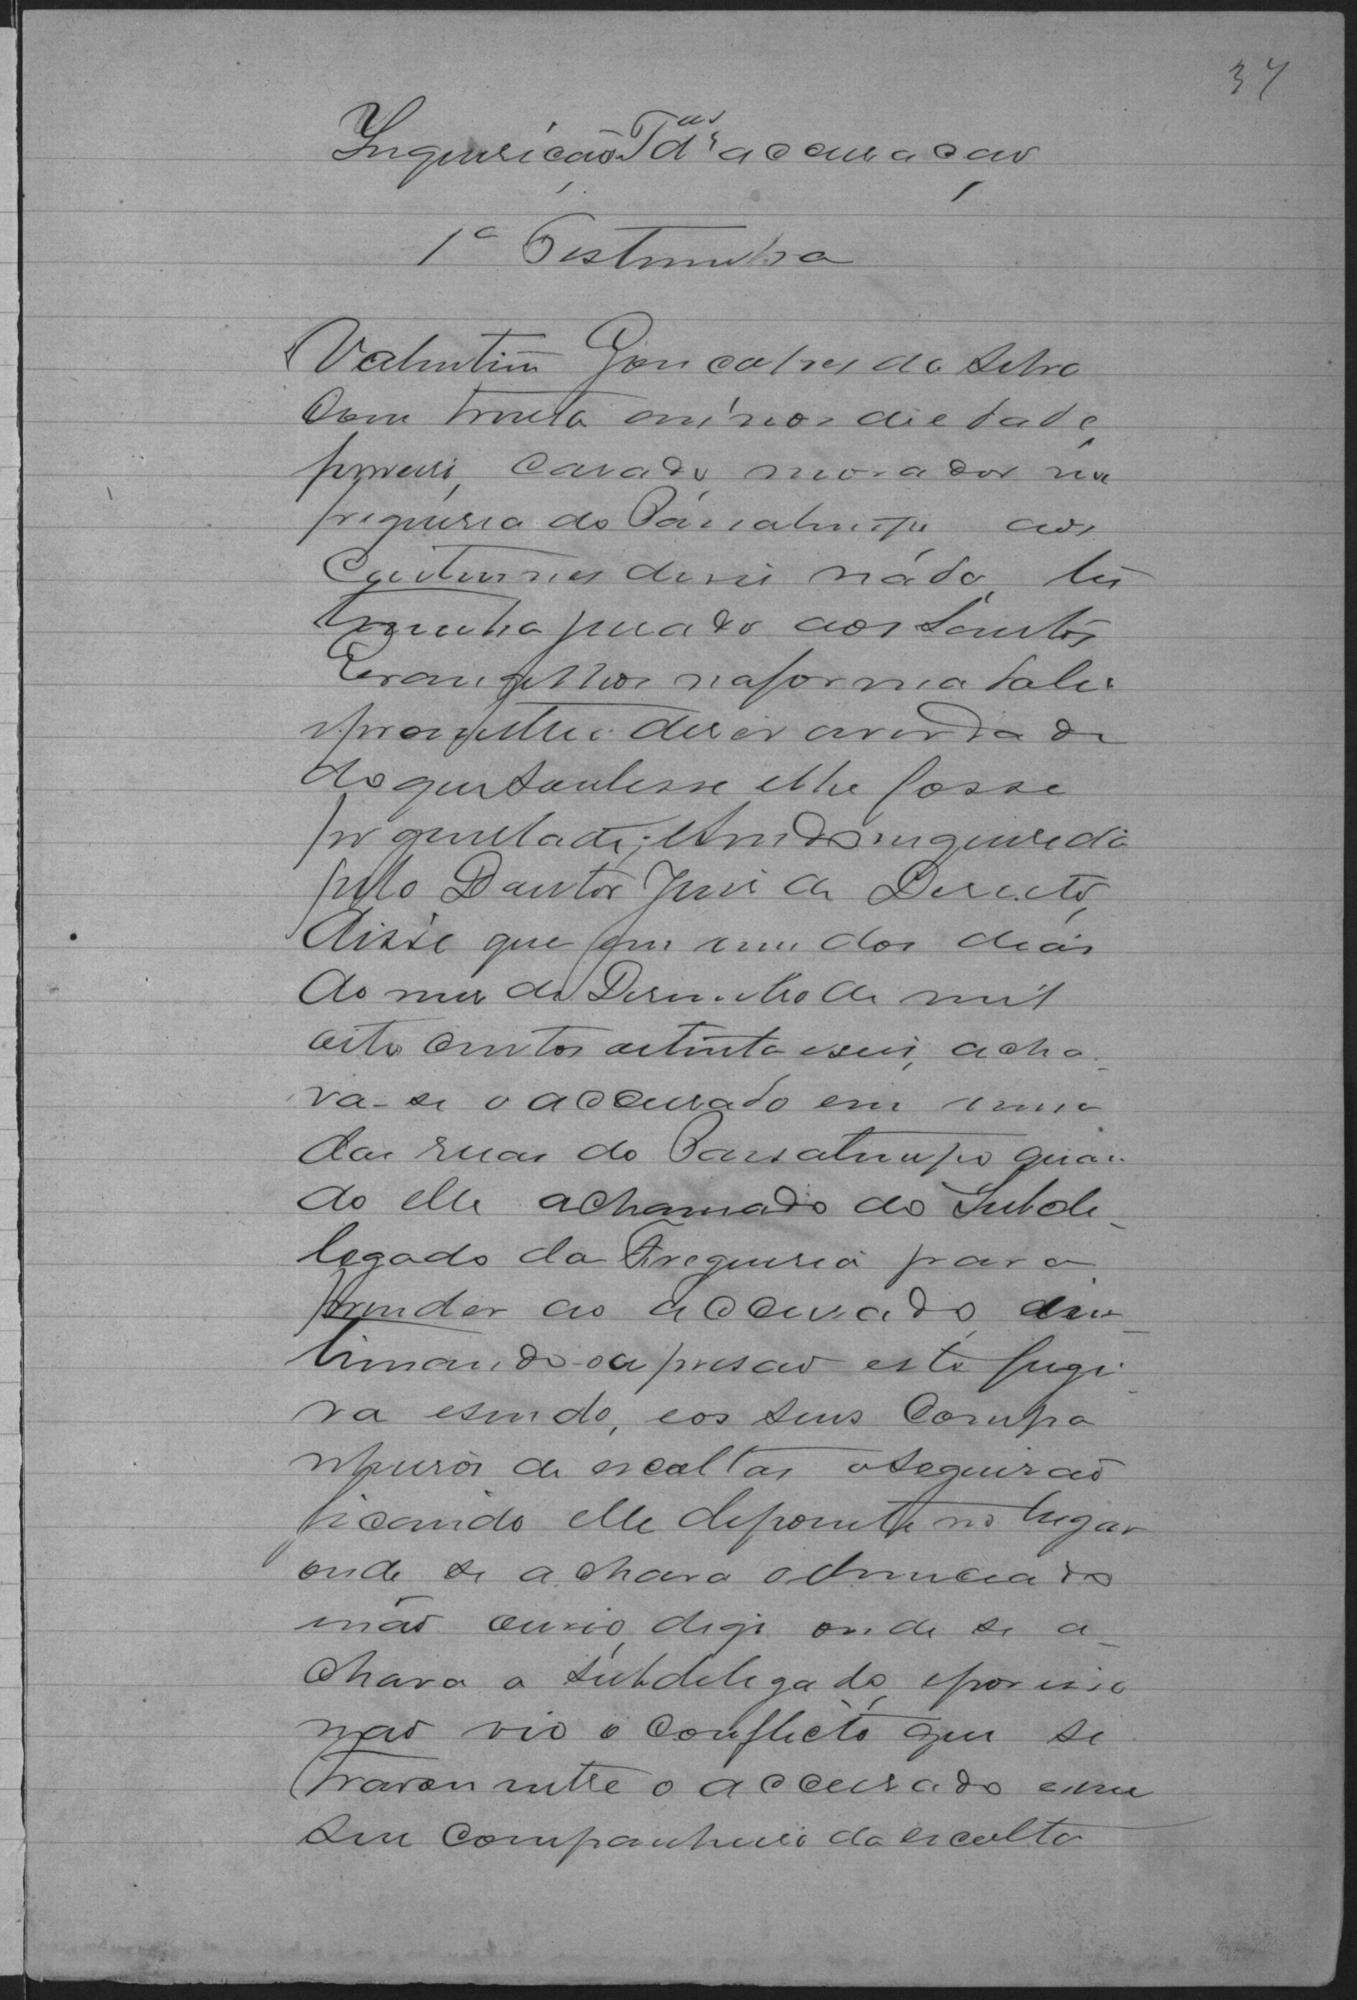 37
Inquirição Tas da accusação
1ª Testemunha
Valentim Gonçalves da Silva
com trinta annos de edade
casado, morador na
freguesia do Passatempo, aos
costumes disse náda, tes
temunha jurado aos Santos
Evangelhos na forma da lei
e prometteu diser a verdade
do que soubesse e lhe fosse
perguntado; e sendo inquirido
pelo Doutor Juiz de Direito,
disse que em um dos dias
do mez de Desembro de mil
oito centos oitenta e seis, acha-
va-se o accusado em uma
das ruas do Passatempo quan
do elle a chamado do Subde-
legado da Freguesia para
prender ao accusado, ein-
timando-o a prisão este fugi-
ra e sendo, e os seus Compa
nheiros de escoltas o seguirão
ficando elle depoente no lugar
onde se achava o denunciado
e não ouvio, digo onde se a-
chava o Subdelegado, e por isso
não vio o conflicto que se
travou entre o accusado e um
seu companheiro da escolta